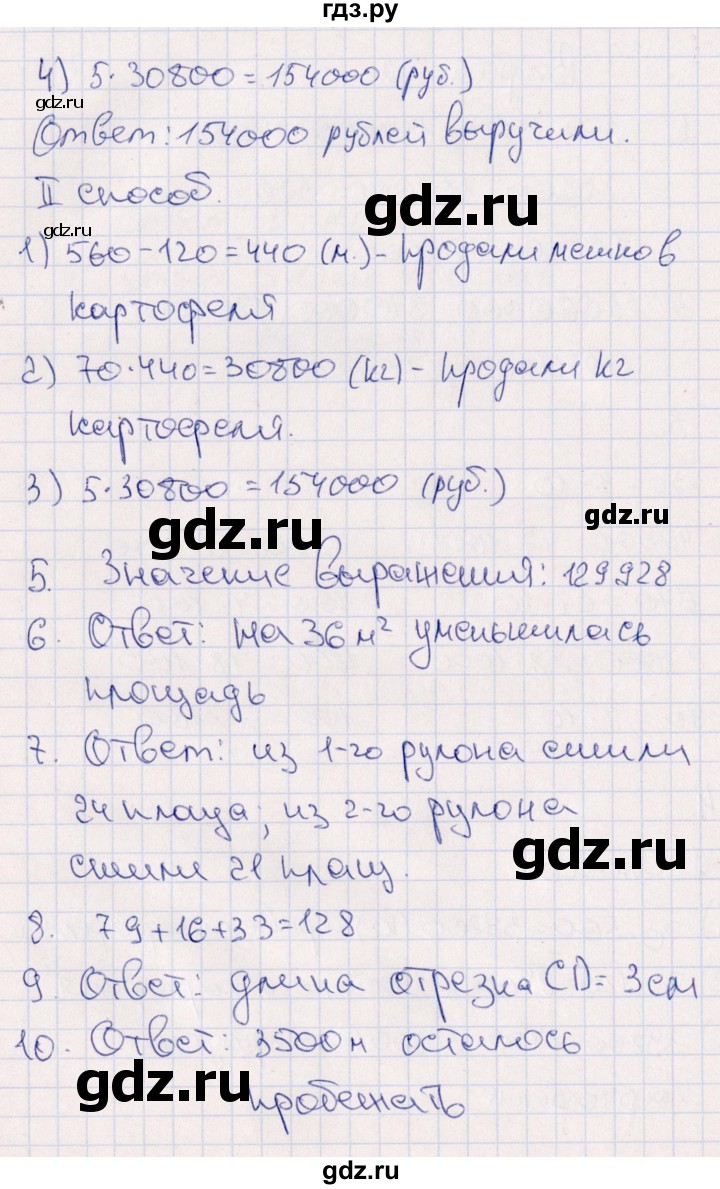 гдз.ру
4) 5·30800=154000 (руб.)
gdz.ru
Ответ: 154000 рублей выручили.
II способ.
gdz.ru
gdz.ru
1) 560-120=440 (м.)- продали мешков
картофеля
2) 70·440=30800 (кг)- продали кг
картофеля.
3) 5·30800=154000 (руб.)
gdz.ru
gdz.ru
5. Значение выражения: 129928
6. Ответ: на 36 м² уменьшилась
площадь
7. Ответ: из 1-го рулона сшили
24 плаща; из 2-го рулона
gdz.ru
сшили 21 плащ.
8. 79+16+33=128
9. Ответ: длина отрезка CD= 3см
10. Ответ: 3500м осталось
gdz.ru
пробежать
gdz.ru